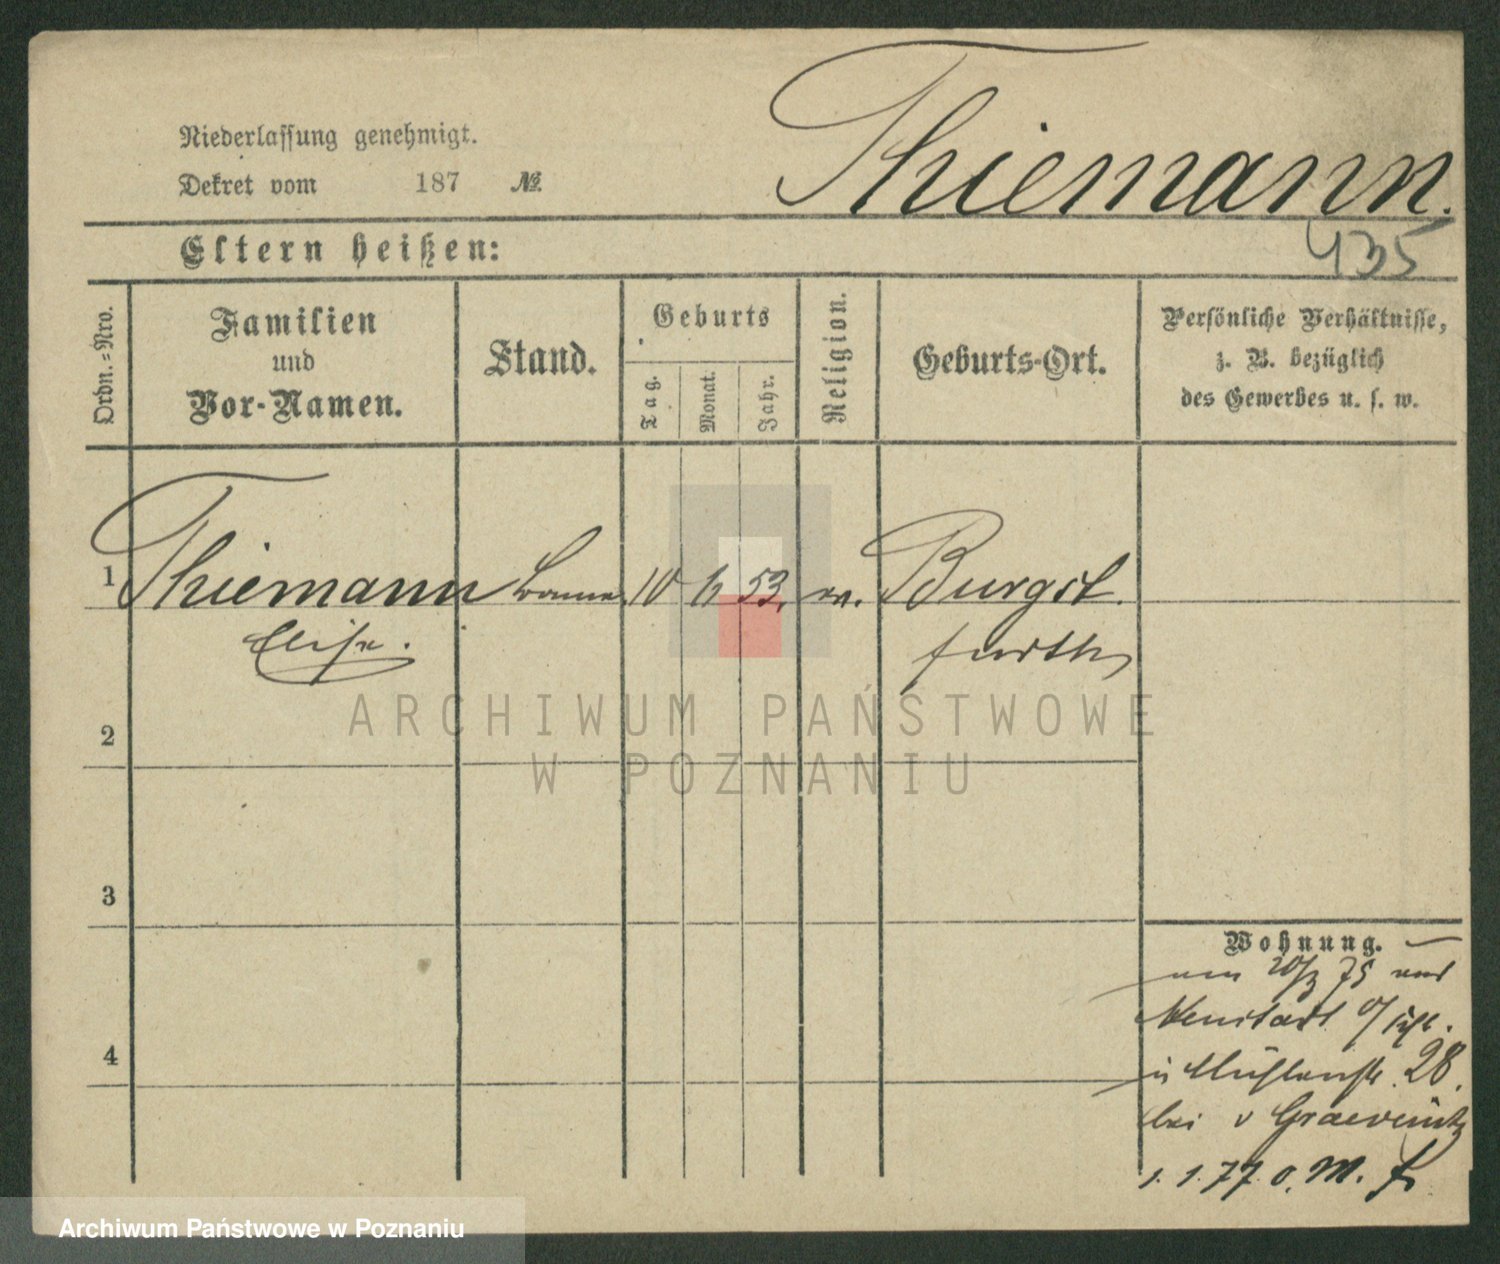 Thiemann.
Niederlassung genehmigt.
Dekret vom 187 №.
Eltern heißen:
435
Ordn.=Nro.
Familien
und
Vor-Namen.
Stand.
Geburts
Tag.
Monat.
Jahr.
Religion.
Geburts-Ort.
Persönliche Verhältnisse,
z. B. bezüglich
des Gewerbes u. s. w.
1 Thiemann 10 53. ev. Burgst.
Elise. furth
2
3
4
Wohnung.
75
Neustadt
Mühlenstr. 28.
bei v Graevenitz
1. 1. 77 o. M.
ARCHIWUM PAŃSTWOWE
W POZNANIU
Archiwum Państwowe w Poznaniu